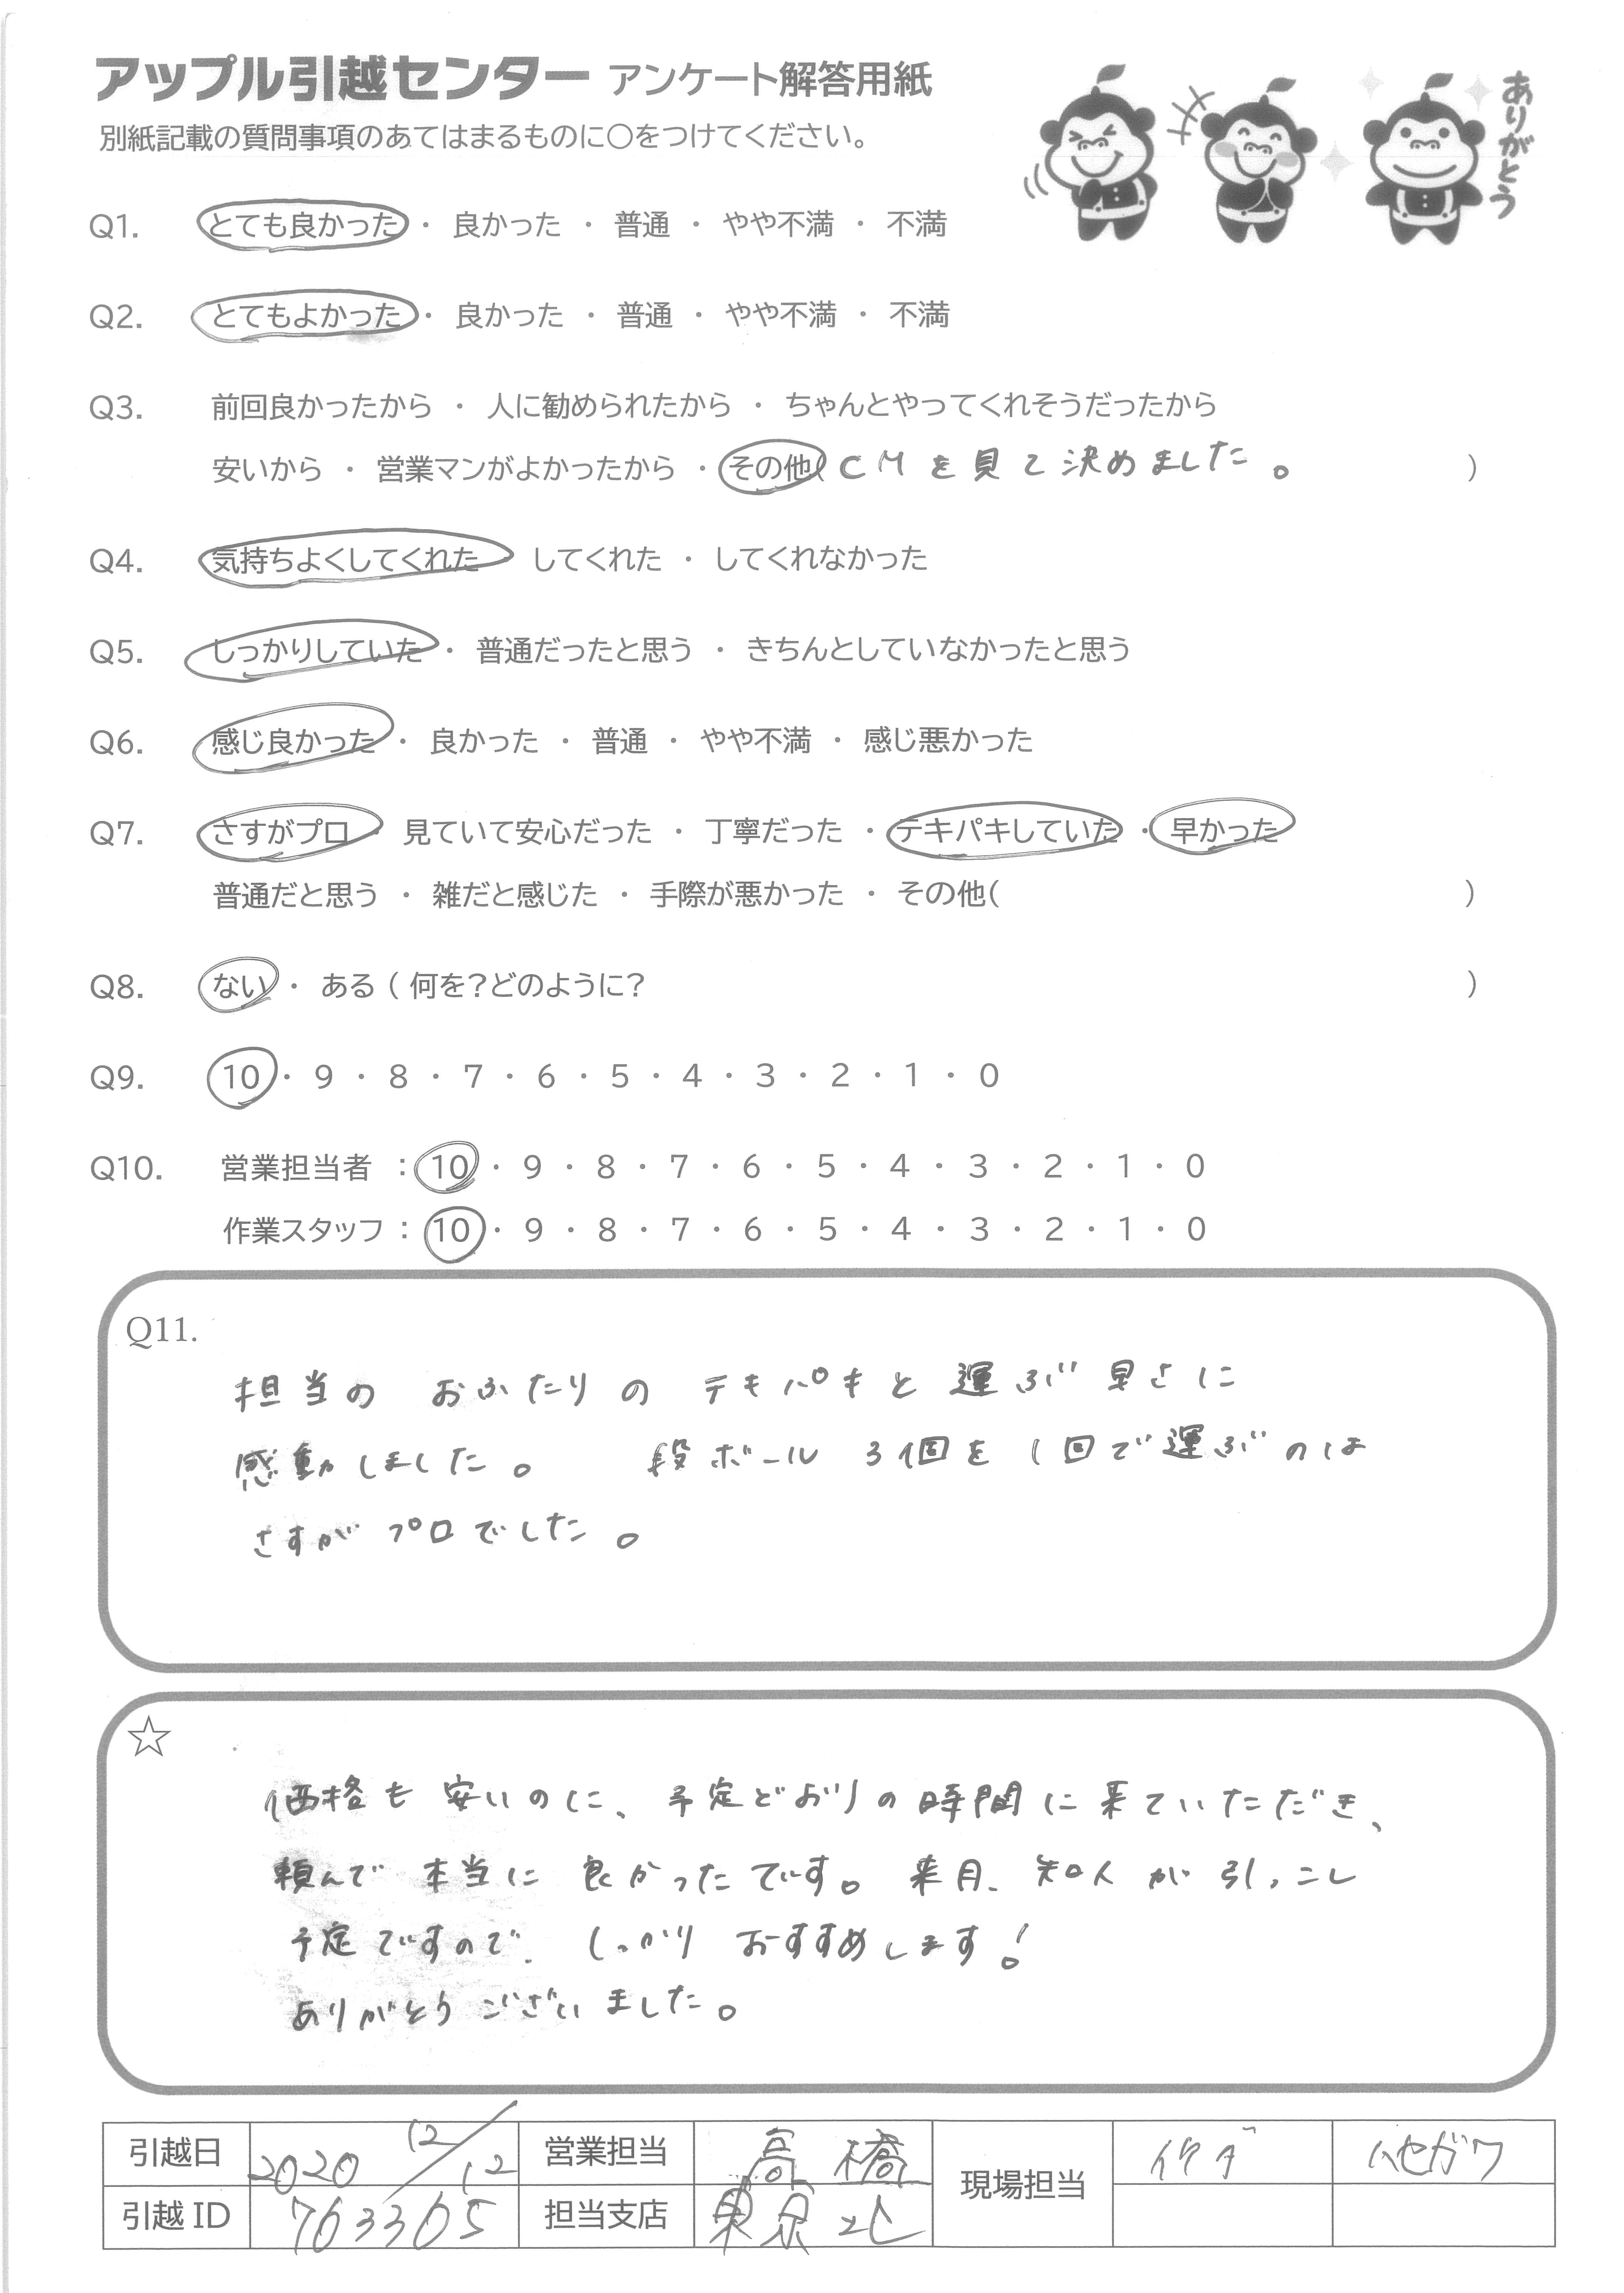 アップル引越センター アンケート解答用紙
別紙記載の質問事項のあてはまるものに○をつけてください。
ありがとう
Q1. とても良かった ・ 良かった ・ 普通 ・ やや不満 ・ 不満
Q2. とてもよかった ・ 良かった ・ 普通 ・ やや不満 ・ 不満
Q3. 前回良かったから ・ 人に勧められたから ・ ちゃんとやってくれそうだったから
安いから ・ 営業マンがよかったから ・ その他( CMを見て決めました。 )
Q4. 気持ちよくしてくれた してくれた ・ してくれなかった
Q5. しっかりしていた ・ 普通だったと思う ・ きちんとしていなかったと思う
Q6. 感じ良かった ・ 良かった ・ 普通 ・ やや不満 ・ 感じ悪かった
Q7. さすがプロ ・ 見ていて安心だった ・ 丁寧だった ・ テキパキしていた ・ 早かった
普通だと思う ・ 雑だと感じた ・ 手際が悪かった ・ その他( )
Q8. ない ・ ある ( 何を?どのように? )
Q9. 10 ・ 9 ・ 8 ・ 7 ・ 6 ・ 5 ・ 4 ・ 3 ・ 2 ・ 1 ・ 0
Q10. 営業担当者 : 10 ・ 9 ・ 8 ・ 7 ・ 6 ・ 5 ・ 4 ・ 3 ・ 2 ・ 1 ・ 0
作業スタッフ : 10 ・ 9 ・ 8 ・ 7 ・ 6 ・ 5 ・ 4 ・ 3 ・ 2 ・ 1 ・ 0
Q11.
担当の おふたりの テキパキと運ぶ早さに
感動しました。 段ボール 3個を1回で運ぶのは
さすがプロでした。
☆
価格も安いのに、予定どおりの時間に来ていただき、
頼んで 本当に 良かったです。来月、知人が引っこし
予定ですので、しっかり おすすめします!
ありがとうございました。
引越日 2020 12/12 営業担当 高橋 現場担当 ハセガワ
引越ID 763365 担当支店 東京北